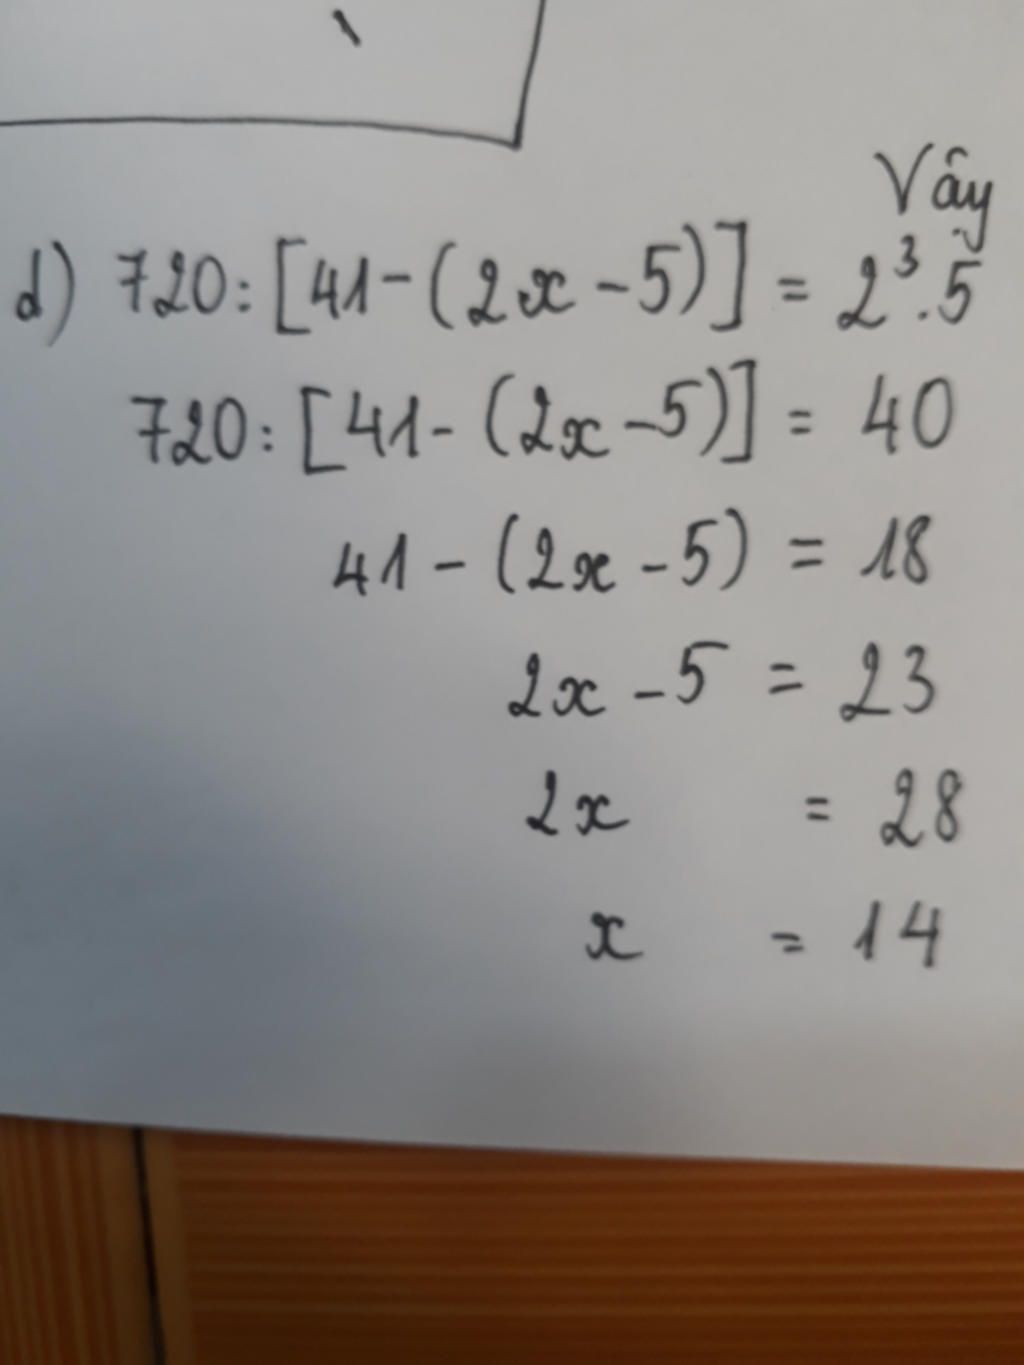 Vậy
d) 720 : [41 - (2x - 5)] = 2³ . 5
720 : [41 - (2x - 5)] = 40
41 - (2x - 5) = 18
2x - 5 = 23
2x = 28
x = 14